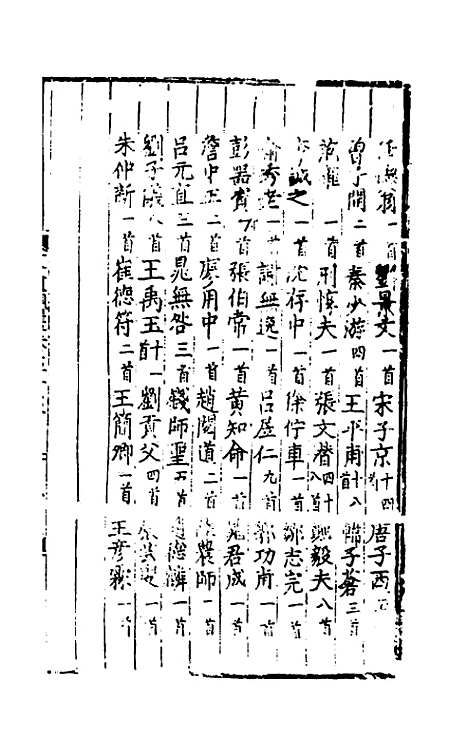 翁一首 景文一首 宋子京十四首 唐子西
曾子開二首 秦少游四首 王平甫十八首 韓子蒼三首
一首 邢惇夫一首 張文潛四十八首 毅夫八首
誠之一首 沈存中一首 徐仲車一首 鄒志完一首
秀老一首 無逸一首 呂居仁九首 郭功甫一首
彭器資 首 張伯常一首 黃知命一首 晁君成一首
詹中正二首 廖用中一首 趙閱道二首 農師一首
呂元直三首 晁無咎三首 錢師聖五首 趙德麟一首
劉子儀八首 王禹玉十一首 劉貢父四首 一首
朱仲新一首 崔德符二首 王簡卿一首 王彥霖一首